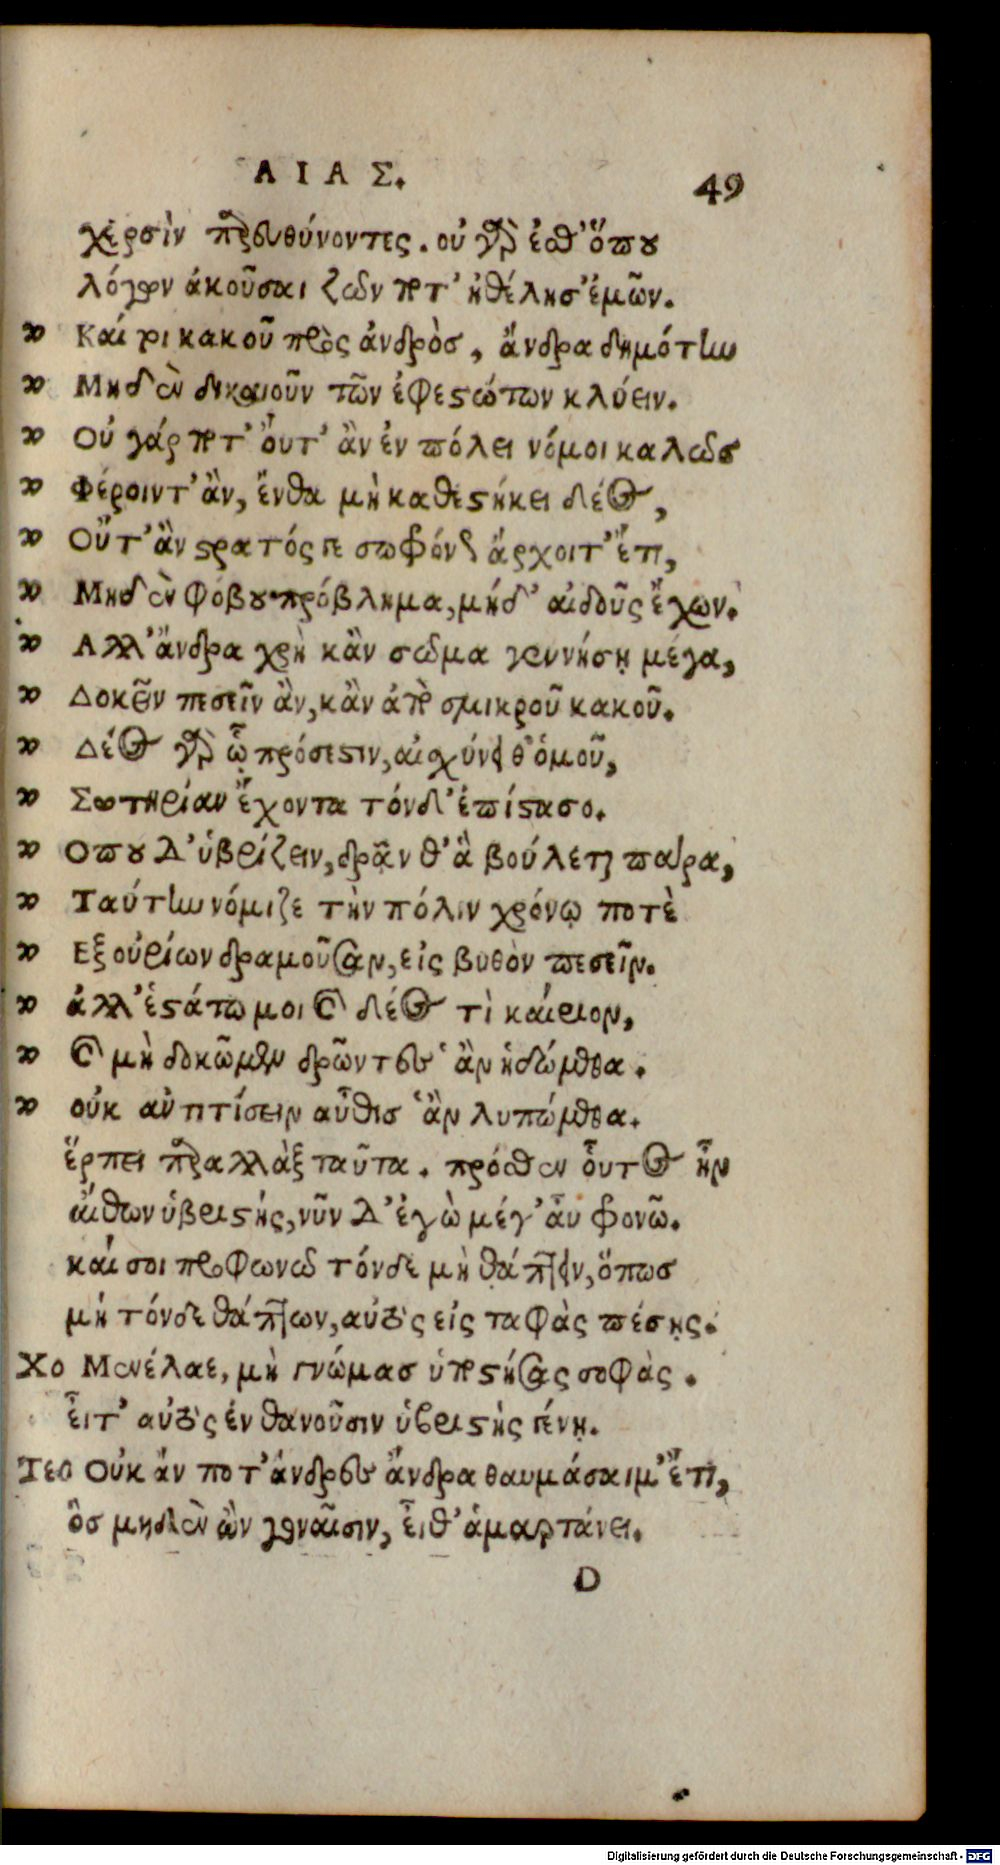 ΑΙΑΣ.
49
χερσὶν παρευθύνοντες. οὐ γὰρ ἐσθ' ὅπου
λόγων ἀκοῦσαι ζῶν ποτ' ἠθέλησ' ἐμῶν.
Καί τοι κακοῦ πρὸς ἀνδρὸς, ἄνδρα δημότην
Μηδὲν δικαιοῦν τῶν ἐφεστώτων κλύειν.
Οὐ γάρ ποτ' ὄυτ' ἂν ἐν πόλει νόμοι καλῶς
Φέροιντ' ἂν, ἔνθα μὴ καθεστήκει δέος,
Οὔτ' ἂν στρατός γε σωφρόνως ἄρχοιτ' ἔτι,
Μηδὲν φόβου πρόβλημα, μήδ' αἰδοῦς ἔχων.
Αλλ' ἄνδρα χρὴ κἂν σῶμα γεννήσῃ μέγα,
Δοκεῖν πεσεῖν ἂν, κἂν ἀπὸ σμικροῦ κακοῦ.
Δέος γὰρ ᾧ πρόσεστιν, αἰσχύνη θ' ὁμοῦ,
Σωτηρίαν ἔχοντα τόνδ' ἐπίστασο.
Οπου δ' ὑβρίζειν, δρᾶν θ' ἃ βούλεται παρα,
Ταύτην νόμιζε τὴν πόλιν χρόνῳ ποτὲ
Εξ οὐρίων δραμοῦσαν, εἰς βυθὸν πεσεῖν.
ἀλλ' ἑστάτω μοι καὶ δέος τὶ καίριον,
καὶ μὴ δοκῶμεν δρῶντες ἃν ἡδώμεθα.
οὐκ αὐτιτίσειν αὖθις ἃν λυπώμεθα.
ἕρπει παραλλὰξ ταῦτα. πρόσθεν οὗτος ἦν
αἴθων ὑβριστής, νῦν δ' ἐγὼ μέγ' αὖ φρονῶ.
καί σοι προφωνῶ τόνδε μὴ θάπτειν, ὅπως
μή τόνδε θάπτων, αὐτὸς εἰς ταφὰς πέσῃς.
Χο Μενέλαε, μὴ γνώμας ὑποστήσας σοφὰς.
εἶτ' αὐτὸς ἐν θανοῦσιν ὑβριστὴς γένῃ.
Τευ Οὐκ ἄν ποτ' ἄνδρες ἄνδρα θαυμάσαιμ' ἔτι,
ὃς μηδὲν ὢν γοναῖσιν, εἶθ' ἁμαρτάνει.
D
Digitalisierung gefördert durch die Deutsche Forschungsgemeinschaft - DFG